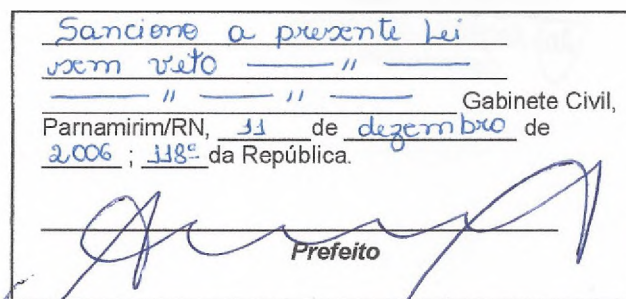 Sanciono a presente Lei
sem veto — " —
— " — " — Gabinete Civil,
Parnamirim/RN, 11 de dezembro de
2006 ; 118º da República.
Prefeito